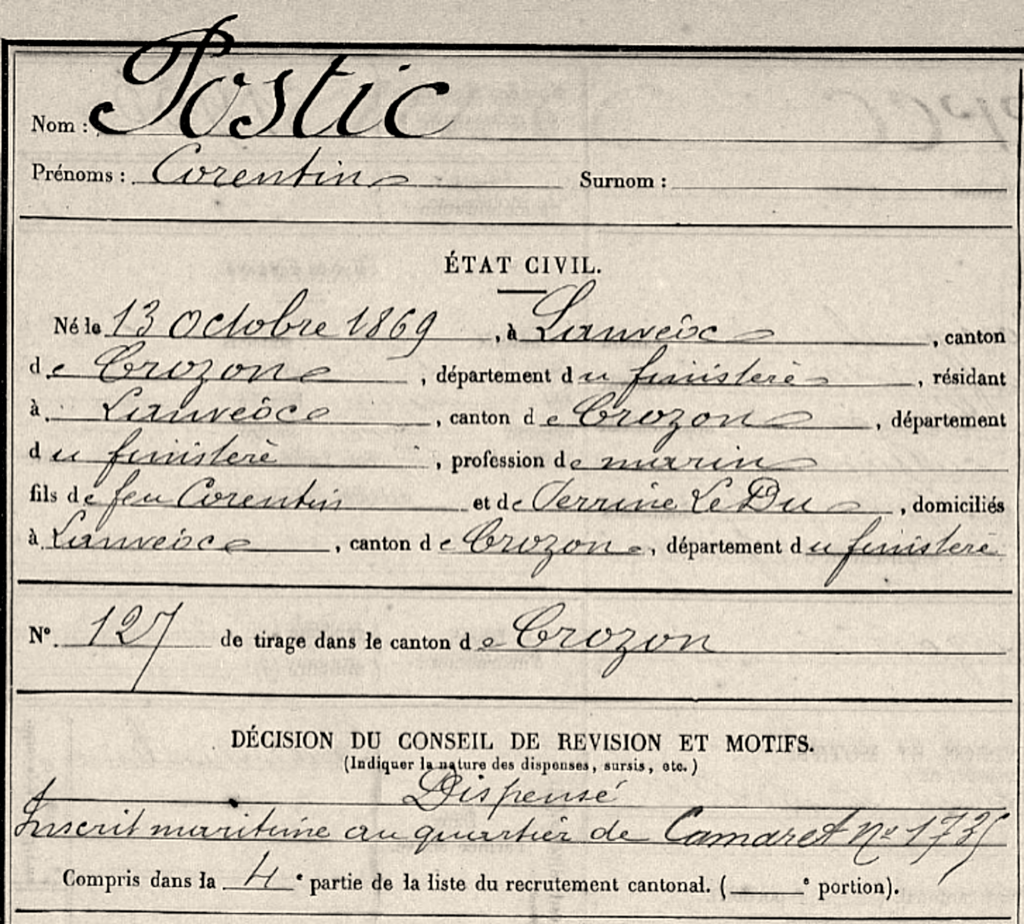 Nom : Postic
Prénoms : Corentin Surnom :
ÉTAT CIVIL.
Né le 13 octobre 1869, à Lanvéoc, canton
de Crozon, département du finistère, résidant
à Lanvéoc, canton de Crozon, département
du finistère, profession de marin
fils de feu Corentin et de Perrine Le Du, domiciliés
à Lanvéoc, canton de Crozon, département du finistère
N° 127 de tirage dans le canton de Crozon
DÉCISION DU CONSEIL DE REVISION ET MOTIFS.
(Indiquer la nature des dispenses, sursis, etc.)
Dispensé
Inscrit maritime au quartier de Camaret n° 1735
Compris dans la 4e partie de la liste du recrutement cantonal. ( e portion).